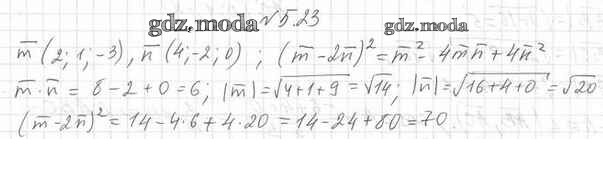 gdz.moda № 5.23 gdz.moda
m̅ (2; 1; -3), n̅ (4; -2; 0) ; (m̅ - 2n̅)² = m̅² - 4m̅n̅ + 4n̅²
m̅ · n̅ = 8 - 2 + 0 = 6; |m̅| = √4+1+9 = √14; |n̅| = √16+4+0 = √20
(m̅ - 2n̅)² = 14 - 4·6 + 4·20 = 14 - 24 + 80 = 70